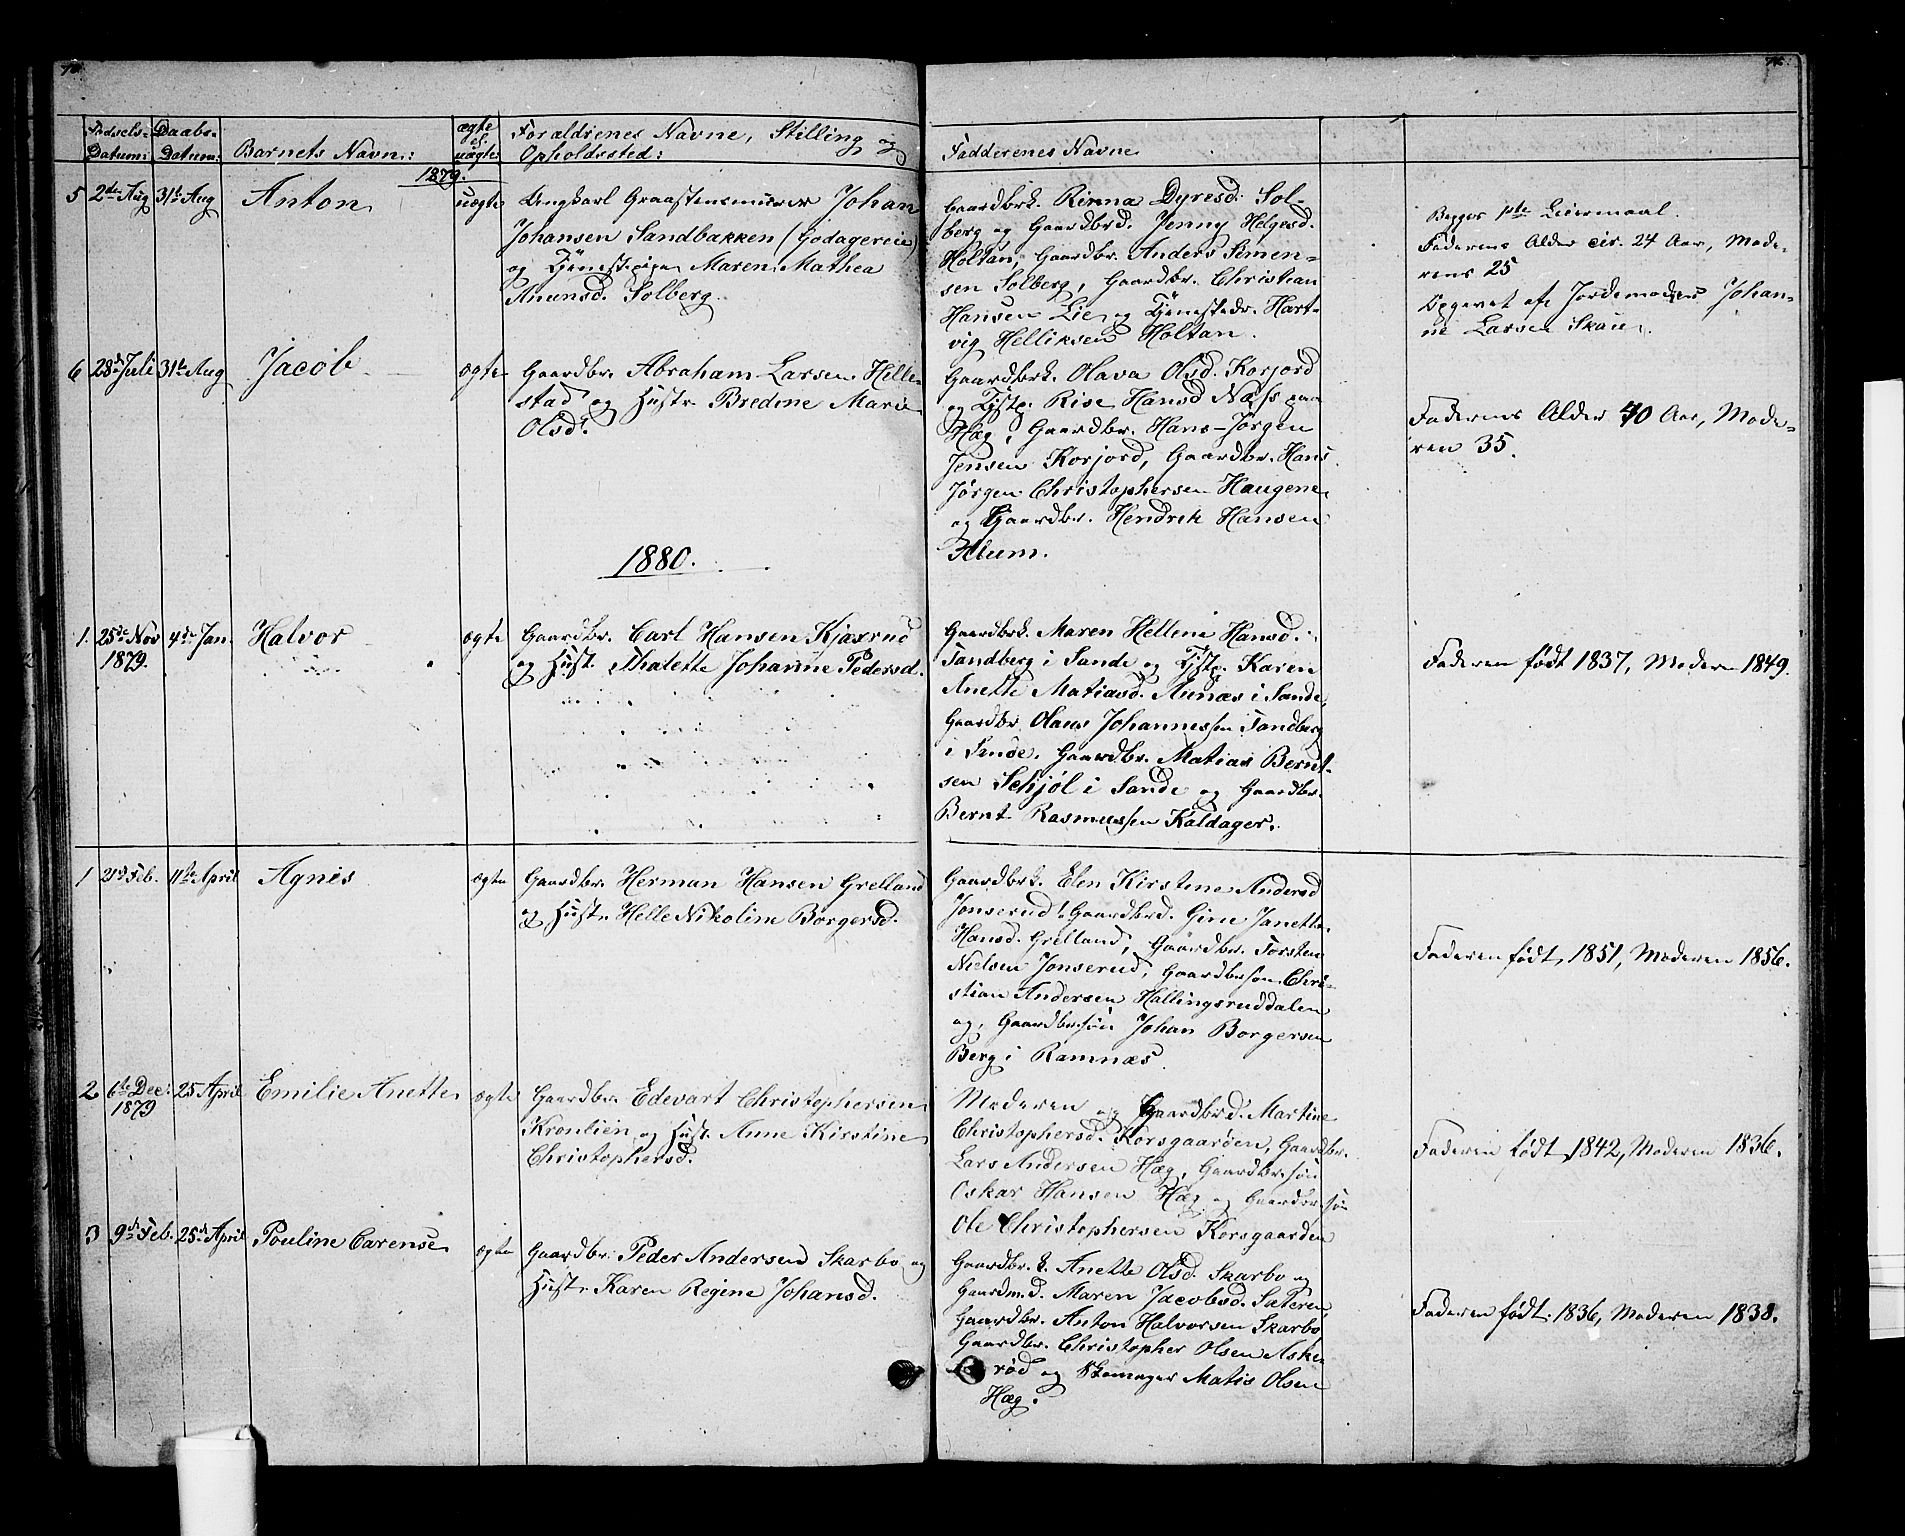 Fødsels-
Datum:
Daabs-
Datum:
Barnets Navn:
ægte
el.
uægte
Forældrenes Navne, Stilling og
Opholdssted:
Fadderenes Navne
1879.
5 2de Aug 31te Aug Anton uægte Ungkarl Graastensmurer Johan
Johansen Sandbakken (Godagereie)
og Tjenestepige Maren Mathea
Anunsd. Solberg.
Gaardbrk. Rinna Dyresd. Sol-
berg og Gaardbrd. Jenny Helgesd.
Holtan, Gaardbr. Anders Simen-
sen Solberg, Gaardbr. Christian
Hansen Lie og Tjenestedr. Hart-
vig Helliksen Holtan.
Begges 1ste Leiermaal.
Faderens Alder cir. 24 Aar, Mode-
rens 25
Opgivet af Jordemoder Johan-
ne Larsen Skau.
6 28de Juli 31te Aug Jacob ægte Gaardbr. Abraham Larsen Hille-
stad og Hustr. Bredine Marie
Olsd.
Gaardbrk. Olava Olsd. Korjord
og Tjstp. Rise Hansd Næss paa
Hæg, Gaardbr. Hans Jørgen
Jensen Korjord, Gaardbr. Hans
Jørgen Christophersen Haugene
og Gaardbr. Hendrik Hansen
Klum.
Faderens Alder 40 Aar, Mode-
ren 35.
1880.
1. 25de Nov 4de Jan. Halvor ægte Gaardbr. Carl Hansen Kjærrud
1879. og Hust. Thalette Johanne Pedersd.
Gaardbrk. Maren Helline Hansd.
Sandberg i Sande og Tjstp. Karen
Anette Matiasd. Aunæs i Sande,
Gaardbr Olaus Johannessen Sandberg
i Sande, Gaardbr. Matias Bernt-
sen Schjøl i Sande og Gaardbr.
Bernt Rasmussen Kaldager.
Faderen født 1837, Moderen 1849.
1 21d Feb. 11te April Agnes ægte Gaardbr. Herman Hansen Grelland
og Hustr. Helle Nikoline Borgersd.
Gaardbrk. Elen Kirstene Andersd
Jonserud, Gaardbrd. Gine Janette
Hansd. Grelland, Gaardbr. Torsten
Nielsen Jonserud, Gaardbrsøn Chri-
stian Andersen Hallingsruddalen
og Gaardbrsøn Johan Borgersen
Berg i Ramnæs.
Faderen født 1851, Moderen 1856.
2 6te Dec: 25 April Emilie Anette ægte Gaardbr. Edevart Christophersen
1879 Kronlien og Hust. Anne Kirstine
Christophersd.
Moderen og Gaardbrd. Martine
Christophersd. Korsgaarden, Gaardbr.
Lars Andersen Hæg, Gaardbr. søn
Oskar Hansen Hæg og Gaardbr. søn
Ole Christophersen Korsgaarden
Faderen født 1842, Moderen 1836.
3 9de Feb. 25de April Pouline Carense ægte Gaardbr. Peder Andersen Skarbo og
Hustr. Karen Regine Johansd.
Gaardbr. k. Anette Olsd. Skarbo og
Gaardm.d. Maren Jacobsd. Sæteren,
Gaardbr. Anton Halvorsen Skarbo
Gaardbr. Christopher Olsen Aske-
rød og Skomager Matis Olsen
Hæg.
Faderen født 1836, Moderen 1838.